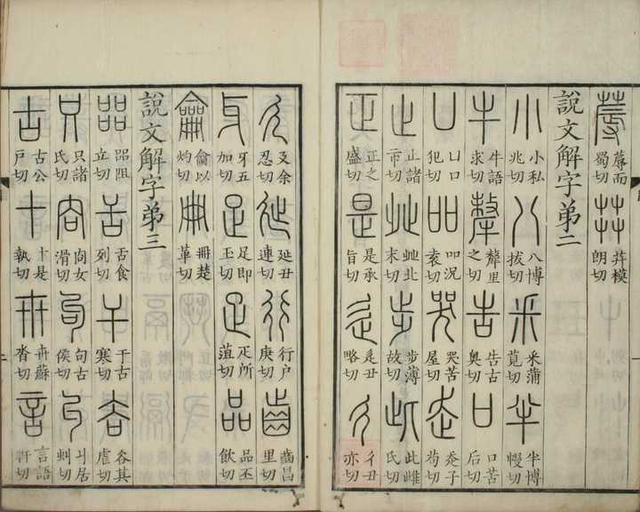 蓐 蓐而蜀切 茻 茻模朗切
說文解字弟二
小 小私兆切 八 八博拔切 釆 釆蒲莧切 半 半博幔切
牛 牛語求切 犛 犛里之切 告 告古奧切 口 口苦后切
凵 凵口犯切 吅 吅況袁切 哭 哭苦屋切 走 走子苟切
止 止諸市切 癶 癶北末切 步 步薄故切 此 此雌氏切
正 正之盛切 是 是承旨切 辵 辵丑略切 彳 彳丑亦切
廴 廴余忍切 㢟 延丑連切 行 行戶庚切 齒 齒昌里切
牙 牙五加切 足 足即玉切 疋 疋所菹切 品 品丕飲切
龠 龠以灼切 冊 冊楚革切
說文解字弟三
㗊 㗊阻立切 舌 舌食列切 干 干古寒切 𧮫 𧮫其虐切
只 只諸氏切 㕯 㕯女滑切 句 句古侯切 丩 丩居虯切
古 古公戶切 十 十是執切 卅 卅蘇沓切 言 言語軒切